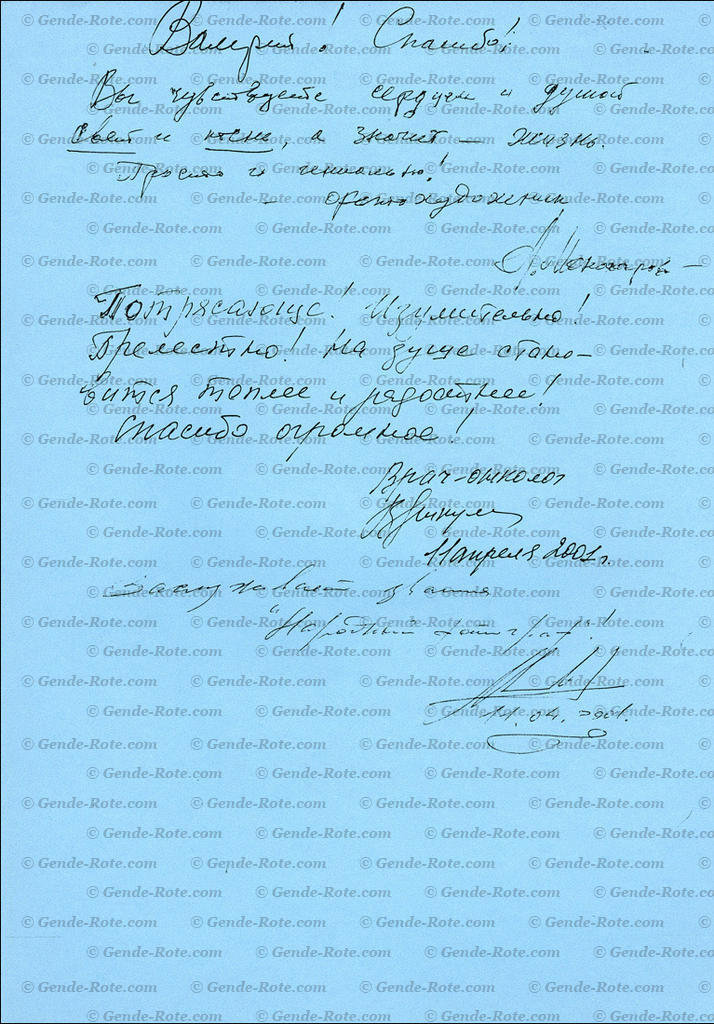 Валерий! Спасибо!
Вы чувствуете сердцем и душой
свет и тень, а значит — жизнь.
Просто и гениально!
— художник
Потрясающе! Изумительно!
Прелестно! На душе стано-
вится теплее и радостнее!
Спасибо огромное!
Врач-онколог
11 апреля 2001г.
Заслуживает звания
"Народный фотограф"!
11.04.2001.
© Gende-Rote.com